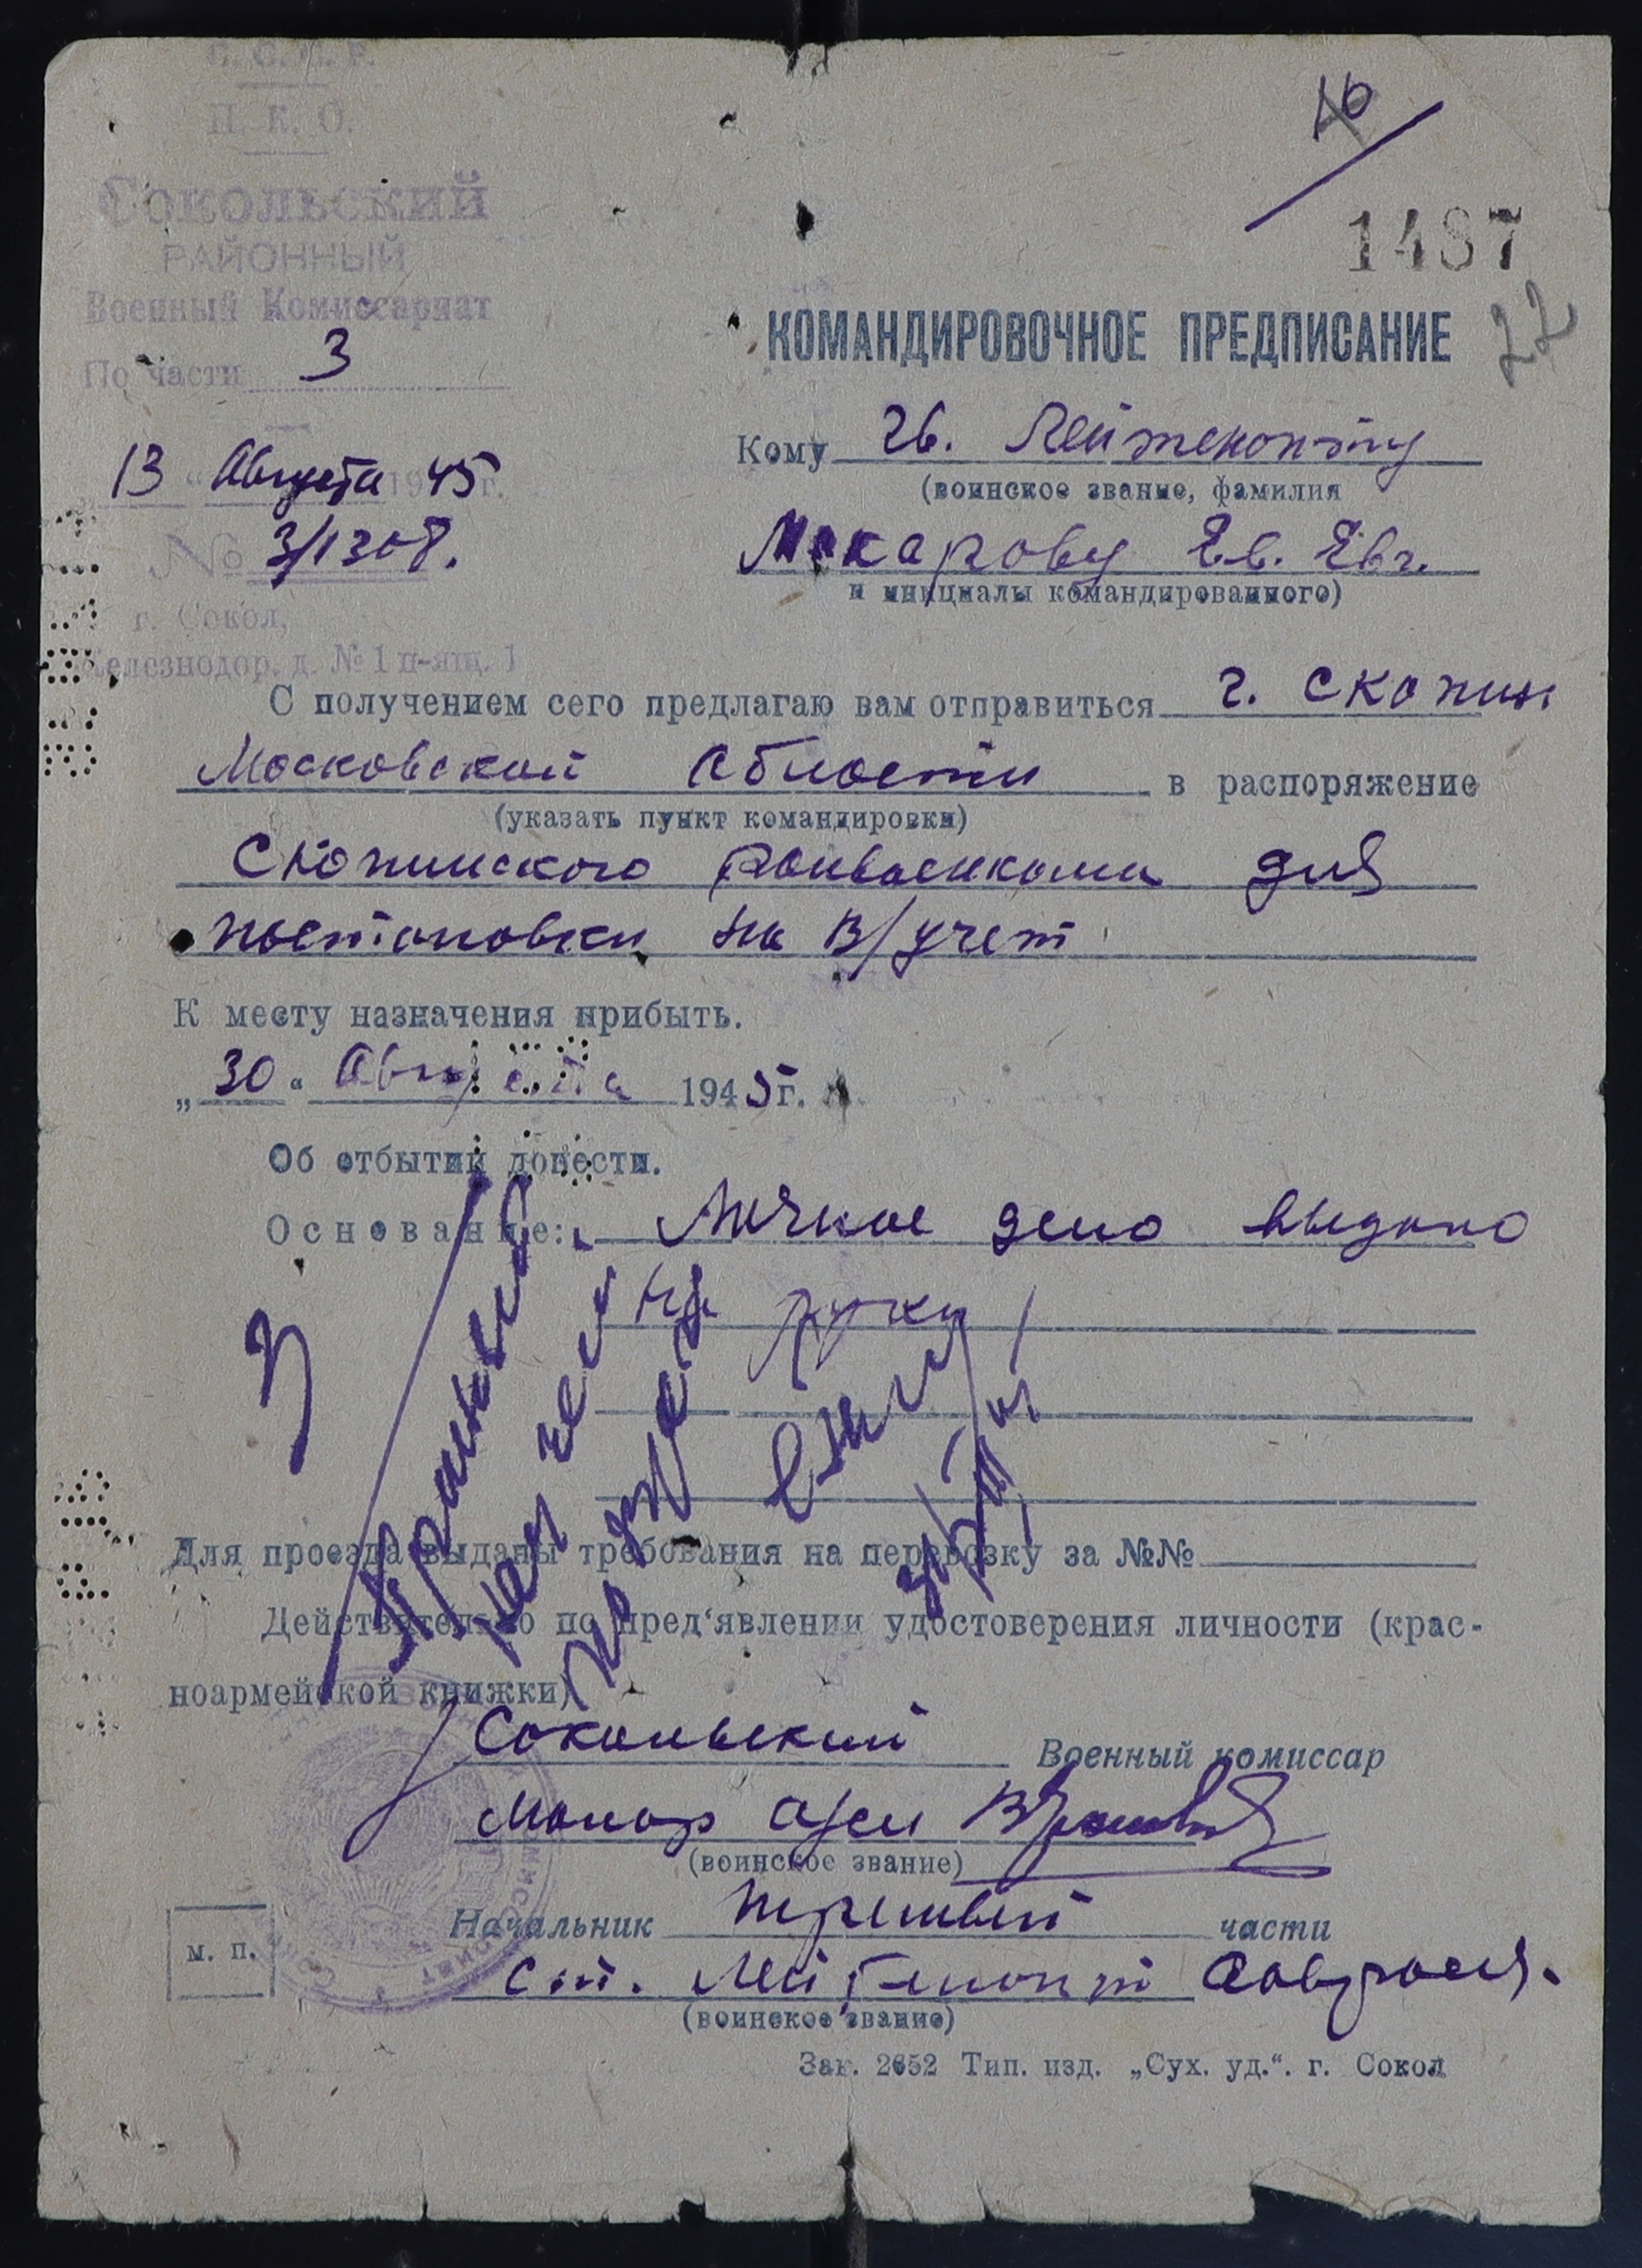 С. С. С. Р.
Н. К. О.
Сокольский
РАЙОННЫЙ
Военный Комиссариат
По части 3
13 Августа 1945 г.
№ 3/1308.
г. Сокол,
Железнодор. д. № 1 п-ящ. 1
16
1487
22
КОМАНДИРОВОЧНОЕ ПРЕДПИСАНИЕ
Кому гв. Лейтенанту
(воинское звание, фамилия
Макарову Ев. Евг.
и инициалы командированного)
С получением сего предлагаю вам отправиться г. Скопин
Московской области в распоряжение
(указать пункт командировки)
Скопинского Райвоенкома для
постановки на в/учет
К месту назначения прибыть.
„30“ Августа 1945 г.
Об отбытии донести.
Основание: Личное дело выдано
на руки
3
Для проезда выданы требования на перевозку за №№
Действительно по пред‘явлении удостоверения личности (крас-
ноармейской книжки)
Сокольский Военный комиссар
Майор а/сл
(воинское звание)
Начальник третьей части
м. п.
Ст. Лейтенант
(воинское звание)
Зак. 2652 Тип. изд. „Сух. уд.“. г. Сокол